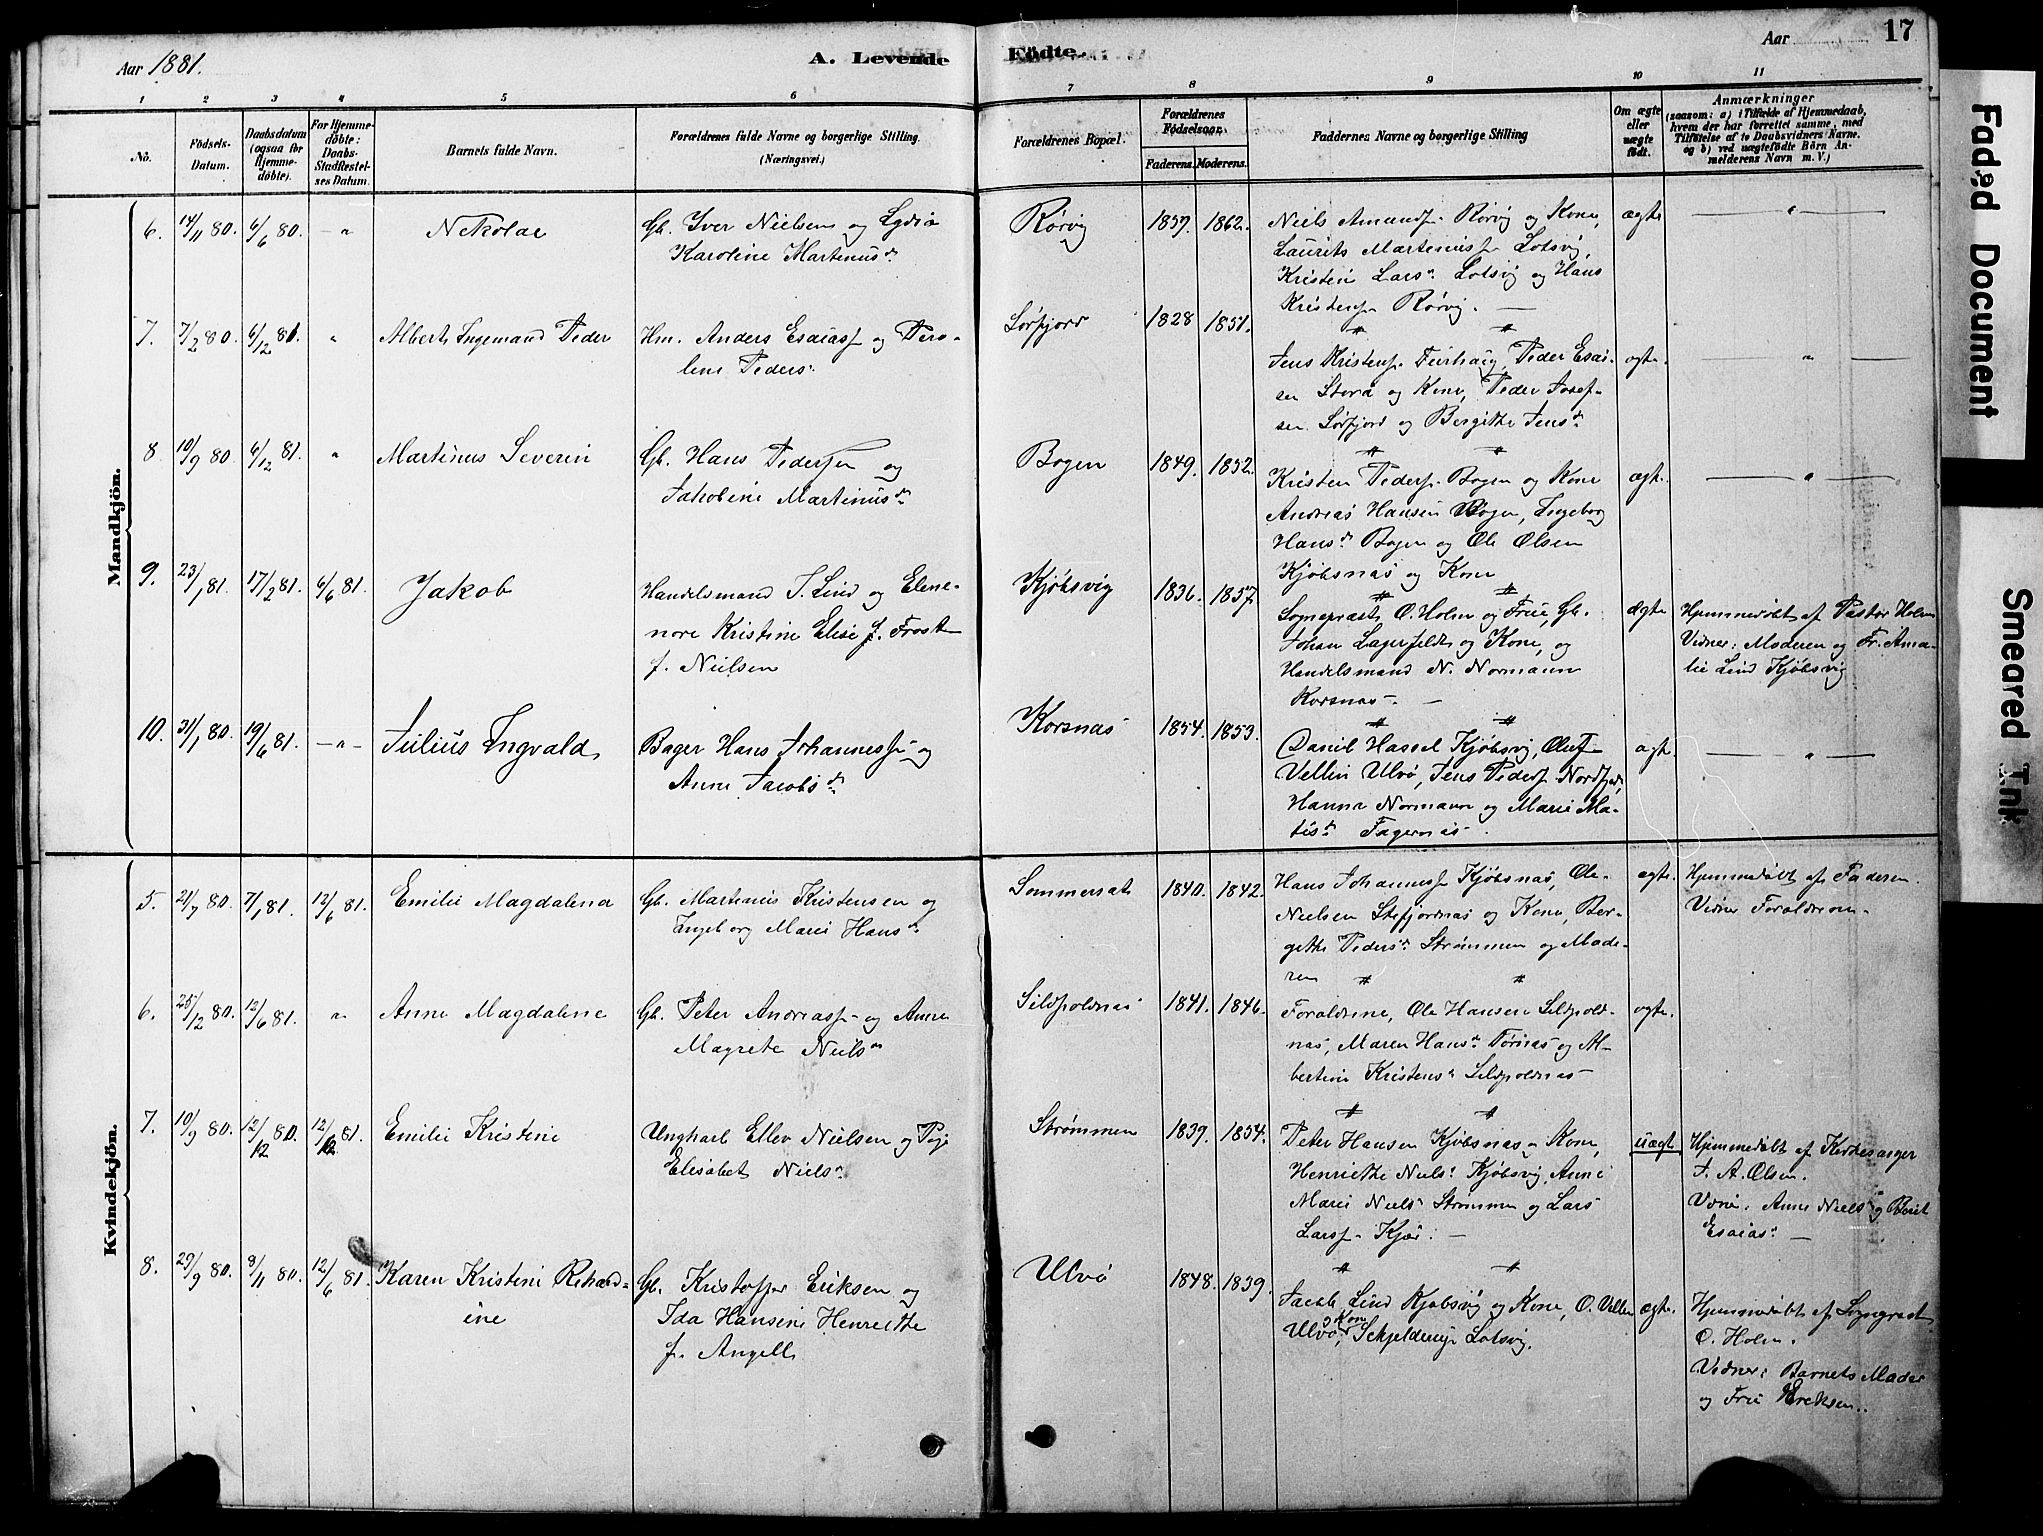 17
Aar 1881.
A. Levende Födte.
Aar
1 2 3 4 5 6 7 8 9 10 11
No.
Födsels-Datum.
Daabsdatum (ogsaa for Hjemmedöbte).
For Hjemmedöbte: Daabs-Stadfæstelses Datum.
Barnets fulde Navn.
Forældrenes fulde Navne og borgerlige Stilling. (Næringsvei.)
Forældrenes Bopæl.
Forældrenes Födselsaar.
Faderens. Moderens.
Faddernes Navne og borgerlige Stilling
Om ægte eller uægte födt.
Anmærkninger
(saasom: a) i Tilfælde af Hjemmedaab, hvem der har forrettet samme, med Tilföielse af to Daabsvidners Navne. og b) ved uægtefödte Börn Anmelderens Navn m. V.)
Mandkjön.
6. 14/11 80. 6/6 80. — " Nikolai
Gb. Iver Nielsen og Lydia
Karoline Martinusd.
Rørvig 1859. 1862.
Niels Amunds. Rørvig og Kone,
Laurits Martinuss. Lotsvig
Kristine Larsd. Lotsvig og Hans
Kristens. Rørvig. —
ægte — " —
7. 7/2 80. 6/12 81. " Albert Ingemand Peder
Hm. Anders Esaiass. og Pero-
line Peders.
Sørfjord 1828 1851.
Jens Kristens. Furhaug, Peder Esai-
sen Storå og Kone, Peder Josef-
sen Sørfjord og Bergithe Jensd.
ægte. — " —
8. 10/9 80. 6/12 81. " Martinus Severin
Gb. Hans Pedersen og
Jakobine Martinusd.
Bogen 1849. 1852.
Kristen Peders. Bogen og Kone
Andreas Hansen Bogen, Ingeborg
Hansd. Bogen og Ole Olsen
Kjøbsnæs og Kone
ægte. — " —
9. 23/1 81. 17/2 81. 6/6 81. Jakob
Handelsmand J. Lind og Elene-
nore Kristine Elise f. Frost
f. Nielsen
Kjøbsvig 1836. 1857.
Sognepræst O. Holm og Frue, Gb.
Johan Lagerfeldt og Kone, og
Handelsmand N. Normann
Korsnæs —
ægte Hjemmedøbt af Pastor Holm
Vidner: Moderen og Fr. Ama-
lie Lind Kjøbsvig
10. 31/1 80. 19/6 81. — " — Julius Ingvald
Bager Hans Johanness. og
Anne Jacobsd.
Korsnæs 1854. 1853.
Daniel Hassel Kjøbsvig, Oluf
Vellin Ulvø, Jens Peders. Nordfjord,
Hanna Normann og Marie Ma-
tisd. Fagernæs.
ægt. — " —
Kvindekjön.
5. 21/7 80. 7/1 81. 12/6 81. Emilie Magdalena
Gb. Martinus Kristensen og
Ingeborg Marie Hansd.
Sommersæt 1840. 1842.
Hans Johanness. Kjøbsnæs, Ole
Nielsen Stefjordnæs og Kone, Ber-
gethe Pedersd. Strømmen og Mode-
ren
ægte. Hjemmedøbt af Faderen
Vidner Forældrene
6. 25/12 80. 12/6 81. " Anne Magdalene
Gb. Peter Andreass. og Anne
Magrete Nielsd.
Sildpoldnæs 1841. 1846.
Forældrene, Ole Hansen Sildpold-
næs, Maren Hansd. Tørnæs og Al-
bertine Kristensd. Sildpoldnæs
ægte.
7. 10/9 80. 12/12 80. 12/6 81. Emilie Kristine
Ungkarl Ellev Nielsen og Pige
Elisabet Nielsd.
Strømmen 1839. 1854.
Peter Hansen Kjøbsnæs og Kone,
Henriette Niels. Kjøbsvig, Anne
Marie Niels. Strømmen og Lars
Larss. Kjær. —
uægt Hjemmedøbt af Kirkesanger
J. A. Olsen.
Vidne: Anne Niels. og Berit
Esaias. —
8. 29/9 80. 8/11 80. 12/6 81. Karen Kristine Rikard-
ine
Gb. Kristoffer Eriksen og
Ida Hansine Henriette
f. Angell
Ulvø 1848. 1839.
Jacob Lind Kjøbsvig og Kone, O. Vellin
Ulvø og Kone, Schjelderup Lotsvig.
ægte. Hjemmedøbt af Sognepræst
O. Holm.
Vidner: Barnets Moder
og Frue Eriksen.
Faded Document
Smeared Ink